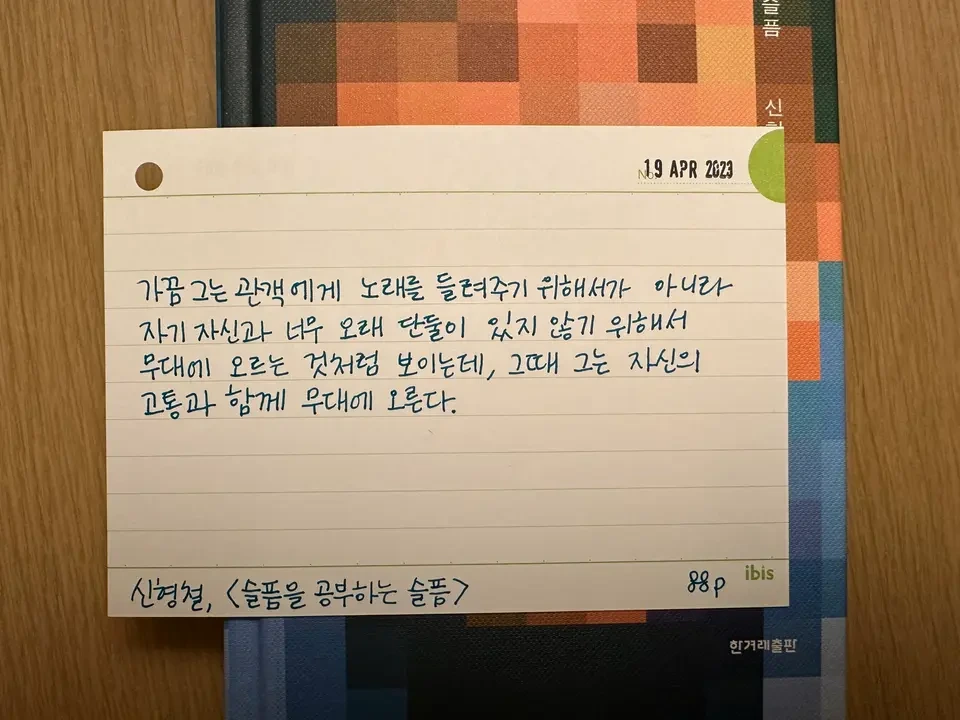 슬픔
신형
19 APR 2023
No.
가끔 그는 관객에게 노래를 들려주기 위해서가 아니라
자기 자신과 너무 오래 단둘이 있지 않기 위해서
무대에 오르는 것처럼 보이는데, 그때 그는 자신의
고통과 함께 무대에 오른다.
신형철, <슬픔을 공부하는 슬픔>
88p
ibis
한겨레출판